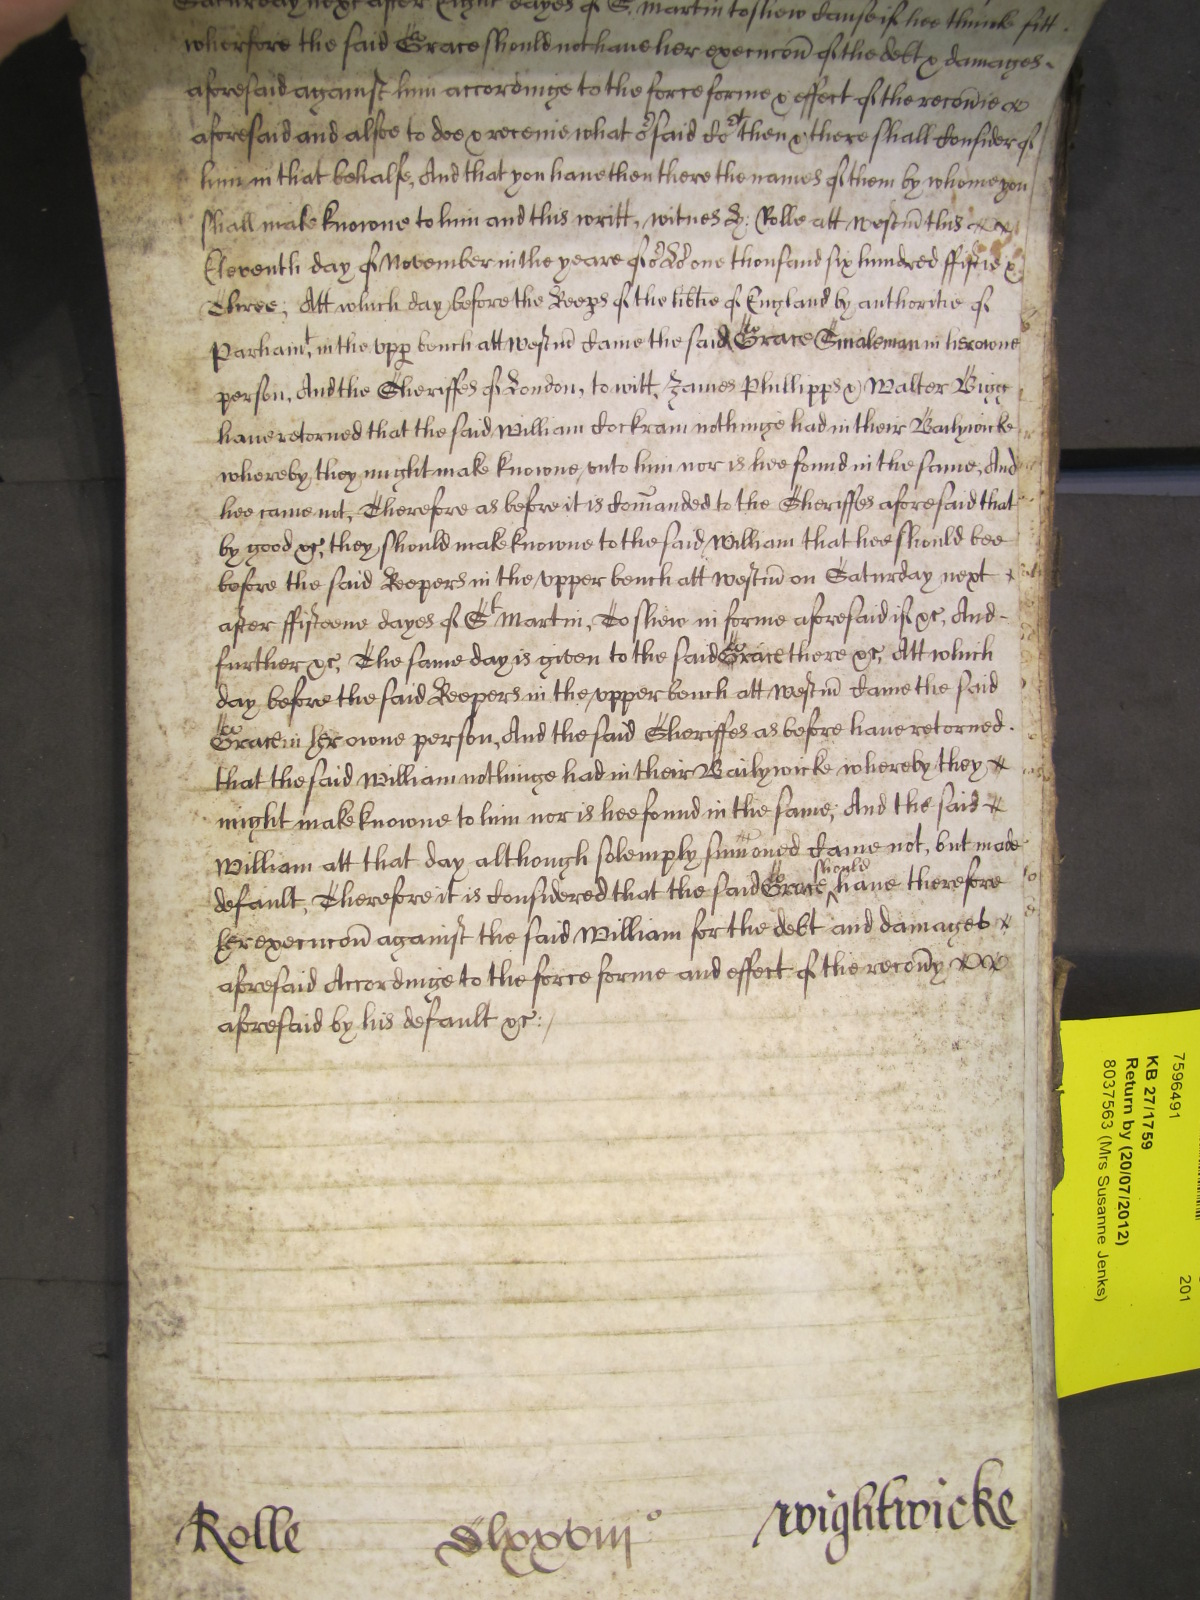 Saturday next after Eight dayes of S. Martin to shew cause if hee thinke fitt
wherfore the said Grace should not have her execucon of the debt & damages
aforesaid against him accordinge to the force forme & effect of the reconie
aforesaid and alsoe to doe & receive what o said Cort then & there shall consider of
him in that behalfe, And that you have then there the names of them by whome you
shall make knowne to him and this writt, witnes H: Rolle att Westm this
Eleventh day of November in the yeare of or Lord one thousand six hundred fiftie &
Three; Att which day before the Keeps of the libtie of England by authoritie of
Parliamt, in the upp bench att Westm came the said Grace Smaleman in her owne
person, And the Sheriffes of London, to witt, James Phillipps & Walter Bigg
have retorned that the said William Cockram nothinge had in their Bailywicke
whereby they might make knowne unto him nor is hee found in the same, And
hee came not, Therefore as before it is comanded to the Sheriffes aforesaid that
by good &c, they should make knowne to the said William that hee should bee
before the said Keepers in the upper bench att Westm on Saturday next
after fifteene dayes of St Martin, To shew in forme aforesaid if &c, And
further &c, The same day is given to the said Grace there &c, Att which
day before the said Keepers in the upper bench att Westm came the said
Grace in her owne person, And the said Sheriffes as before have retorned
that the said William nothinge had in their Bailywicke whereby they
might make knowne to him nor is hee found in the same; And the said
William att that day although solemply sumoned came not, but made
default, Therefore it is considered that the said Grace should have therefore
her execucon against the said William for the debt and damages
aforesaid Accordinge to the force forme and effect of the recony
aforesaid by his default &c:
Rolle Clxxviii° Wightwicke
7596491
KB 27/1759
Return by (20/07/2012)
8037563 (Mrs Susanne Jenks)
201